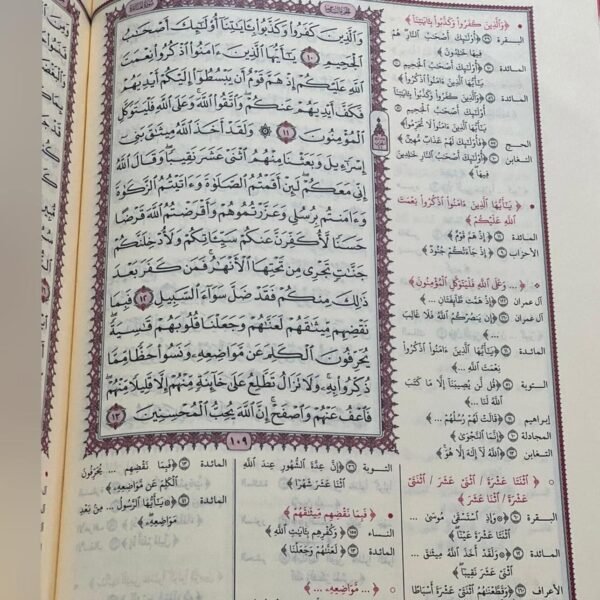 وَالَّذِينَ كَفَرُوا۟ وَكَذَّبُوا۟ بِـَٔايَـٰتِنَآ أُو۟لَـٰٓئِكَ أَصْحَـٰبُ
ٱلْجَحِيمِ ١٠ يَـٰٓأَيُّهَا ٱلَّذِينَ ءَامَنُوا۟ ٱذْكُرُوا۟ نِعْمَتَ
ٱللَّهِ عَلَيْكُمْ إِذْ هَمَّ قَوْمٌ أَن يَبْسُطُوٓا۟ إِلَيْكُمْ أَيْدِيَهُمْ
فَكَفَّ أَيْدِيَهُمْ عَنكُمْ ۖ وَٱتَّقُوا۟ ٱللَّهَ ۚ وَعَلَى ٱللَّهِ فَلْيَتَوَكَّلِ
ٱلْمُؤْمِنُونَ ١١ ۞ وَلَقَدْ أَخَذَ ٱللَّهُ مِيثَـٰقَ بَنِىٓ
إِسْرَٰٓءِيلَ وَبَعَثْنَا مِنْهُمُ ٱثْنَىْ عَشَرَ نَقِيبًا ۖ وَقَالَ ٱللَّهُ
إِنِّى مَعَكُمْ ۖ لَئِنْ أَقَمْتُمُ ٱلصَّلَوٰةَ وَءَاتَيْتُمُ ٱلزَّكَوٰةَ
وَءَامَنتُم بِرُسُلِى وَعَزَّرْتُمُوهُمْ وَأَقْرَضْتُمُ ٱللَّهَ قَرْضًا
حَسَنًا لَّأُكَفِّرَنَّ عَنكُمْ سَيِّـَٔاتِكُمْ وَلَأُدْخِلَنَّكُمْ
جَنَّـٰتٍ تَجْرِى مِن تَحْتِهَا ٱلْأَنْهَـٰرُ ۚ فَمَن كَفَرَ بَعْدَ
ذَٰلِكَ مِنكُمْ فَقَدْ ضَلَّ سَوَآءَ ٱلسَّبِيلِ ١٢ فَبِمَا
نَقْضِهِم مِّيثَـٰقَهُمْ لَعَنَّـٰهُمْ وَجَعَلْنَا قُلُوبَهُمْ قَـٰسِيَةً ۖ
يُحَرِّفُونَ ٱلْكَلِمَ عَن مَّوَاضِعِهِۦ ۙ وَنَسُوا۟ حَظًّا مِّمَّا
ذُكِّرُوا۟ بِهِۦ ۚ وَلَا تَزَالُ تَطَّلِعُ عَلَىٰ خَآئِنَةٍ مِّنْهُمْ إِلَّا قَلِيلًا مِّنْهُمْ ۖ
فَٱعْفُ عَنْهُمْ وَٱصْفَحْ ۚ إِنَّ ٱللَّهَ يُحِبُّ ٱلْمُحْسِنِينَ ١٣
١٠٩
﴿وَالَّذِينَ كَفَرُوا وَكَذَّبُوا بِآيَاتِنَا﴾
البقرة ﴿أُولَئِكَ أَصْحَابُ النَّارِ هُمْ
فِيهَا خَالِدُونَ﴾
المائدة ﴿أُولَئِكَ أَصْحَابُ الْجَحِيمِ
يَا أَيُّهَا الَّذِينَ آمَنُوا اذْكُرُوا﴾
المائدة ﴿وَالَّذِينَ كَفَرُوا وَكَذَّبُوا بِآيَاتِنَا
أُولَئِكَ أَصْحَابُ الْجَحِيمِ
يَا أَيُّهَا الَّذِينَ آمَنُوا لَا تُحَرِّمُوا﴾
الحج ﴿فَأُولَئِكَ لَهُمْ عَذَابٌ مُهِينٌ﴾
التغابن ﴿أُولَئِكَ أَصْحَابُ النَّارِ خَالِدِينَ
فِيهَا﴾
﴿يَا أَيُّهَا الَّذِينَ آمَنُوا اذْكُرُوا نِعْمَتَ
اللَّهِ عَلَيْكُمْ﴾
المائدة ﴿إِذْ هَمَّ قَوْمٌ﴾
الأحزاب ﴿إِذْ جَاءَتْكُمْ جُنُودٌ﴾
﴿... وَعَلَى اللَّهِ فَلْيَتَوَكَّلِ الْمُؤْمِنُونَ﴾
آل عمران ﴿إِذْ هَمَّتْ طَائِفَتَانِ ...﴾
آل عمران ﴿إِنْ يَنْصُرْكُمُ اللَّهُ فَلَا غَالِبَ
...﴾
المائدة ﴿يَا أَيُّهَا الَّذِينَ آمَنُوا اذْكُرُوا
نِعْمَتَ اللَّهِ ...﴾
التوبة ﴿قُلْ لَنْ يُصِيبَنَا إِلَّا مَا كَتَبَ
اللَّهُ لَنَا ...﴾
إبراهيم ﴿قَالَتْ لَهُمْ رُسُلُهُمْ ...﴾
المجادلة ﴿إِنَّمَا النَّجْوَى﴾
التغابن ﴿اللَّهُ لَا إِلَهَ إِلَّا هُوَ﴾
﴿اثْنَتَا عَشْرَةَ / اثْنَيْ عَشَرَ / اثْنَتَيْ
عَشْرَةَ / اثْنَا عَشَرَ﴾
البقرة ﴿وَإِذِ اسْتَسْقَى مُوسَى ...
اثْنَتَا عَشْرَةَ عَيْنًا﴾
المائدة ﴿وَلَقَدْ أَخَذَ اللَّهُ مِيثَاقَ ...
اثْنَيْ عَشَرَ نَقِيبًا﴾
الأعراف ﴿وَقَطَّعْنَاهُمُ اثْنَتَيْ عَشْرَةَ أَسْبَاطًا
التوبة ﴿إِنَّ عِدَّةَ الشُّهُورِ عِنْدَ اللَّهِ
اثْنَا عَشَرَ شَهْرًا﴾
﴿فَبِمَا نَقْضِهِمْ مِيثَاقَهُمْ﴾
النساء ﴿وَكُفْرِهِمْ بِآيَاتِ اللَّهِ﴾
المائدة ﴿لَعَنَّاهُمْ وَجَعَلْنَا﴾
﴿... مَوَاضِعِهِ ...﴾
المائدة ﴿فَبِمَا نَقْضِهِمْ ... يُحَرِّفُونَ
الْكَلِمَ عَنْ مَوَاضِعِهِ﴾
المائدة ﴿يَا أَيُّهَا الرَّسُولُ ... مِنْ بَعْدِ
مَوَاضِعِهِ﴾